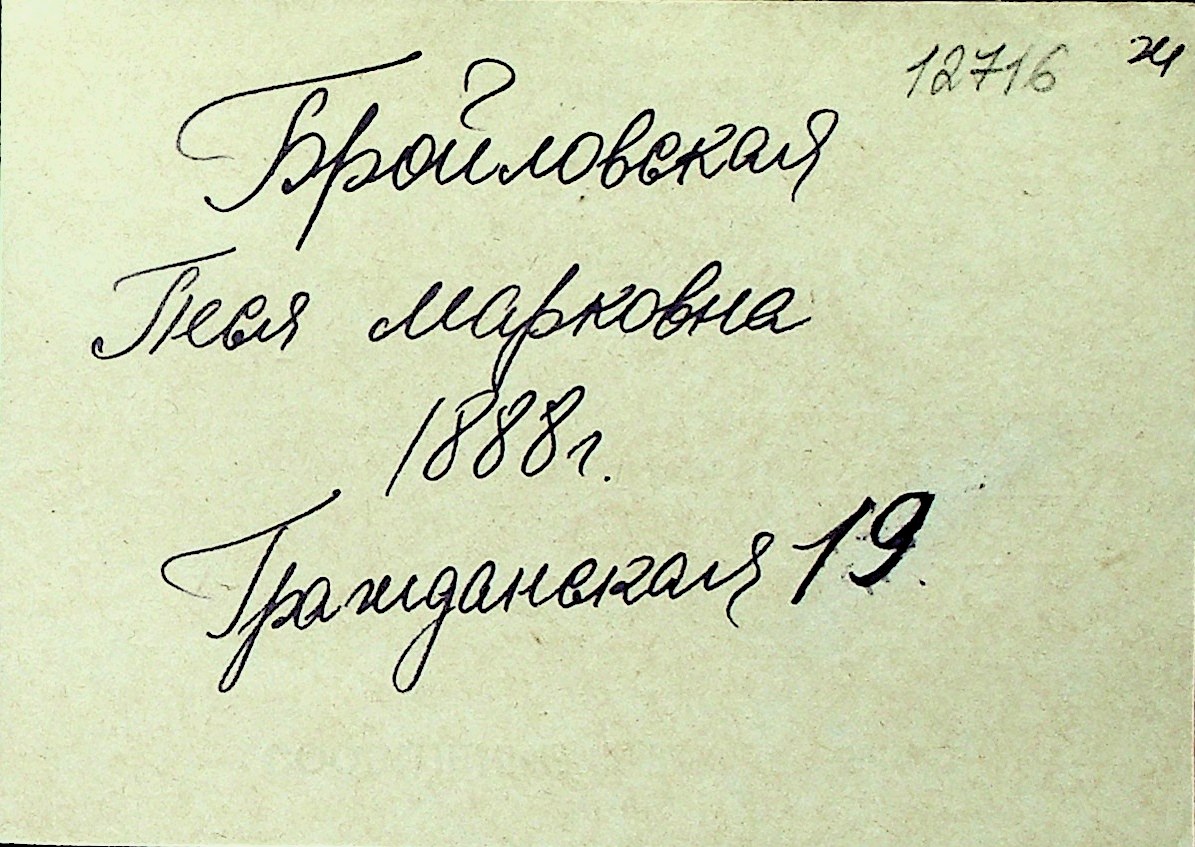 12716 ж
Бройловская
Песя Марковна
1888г.
Гражданская 19